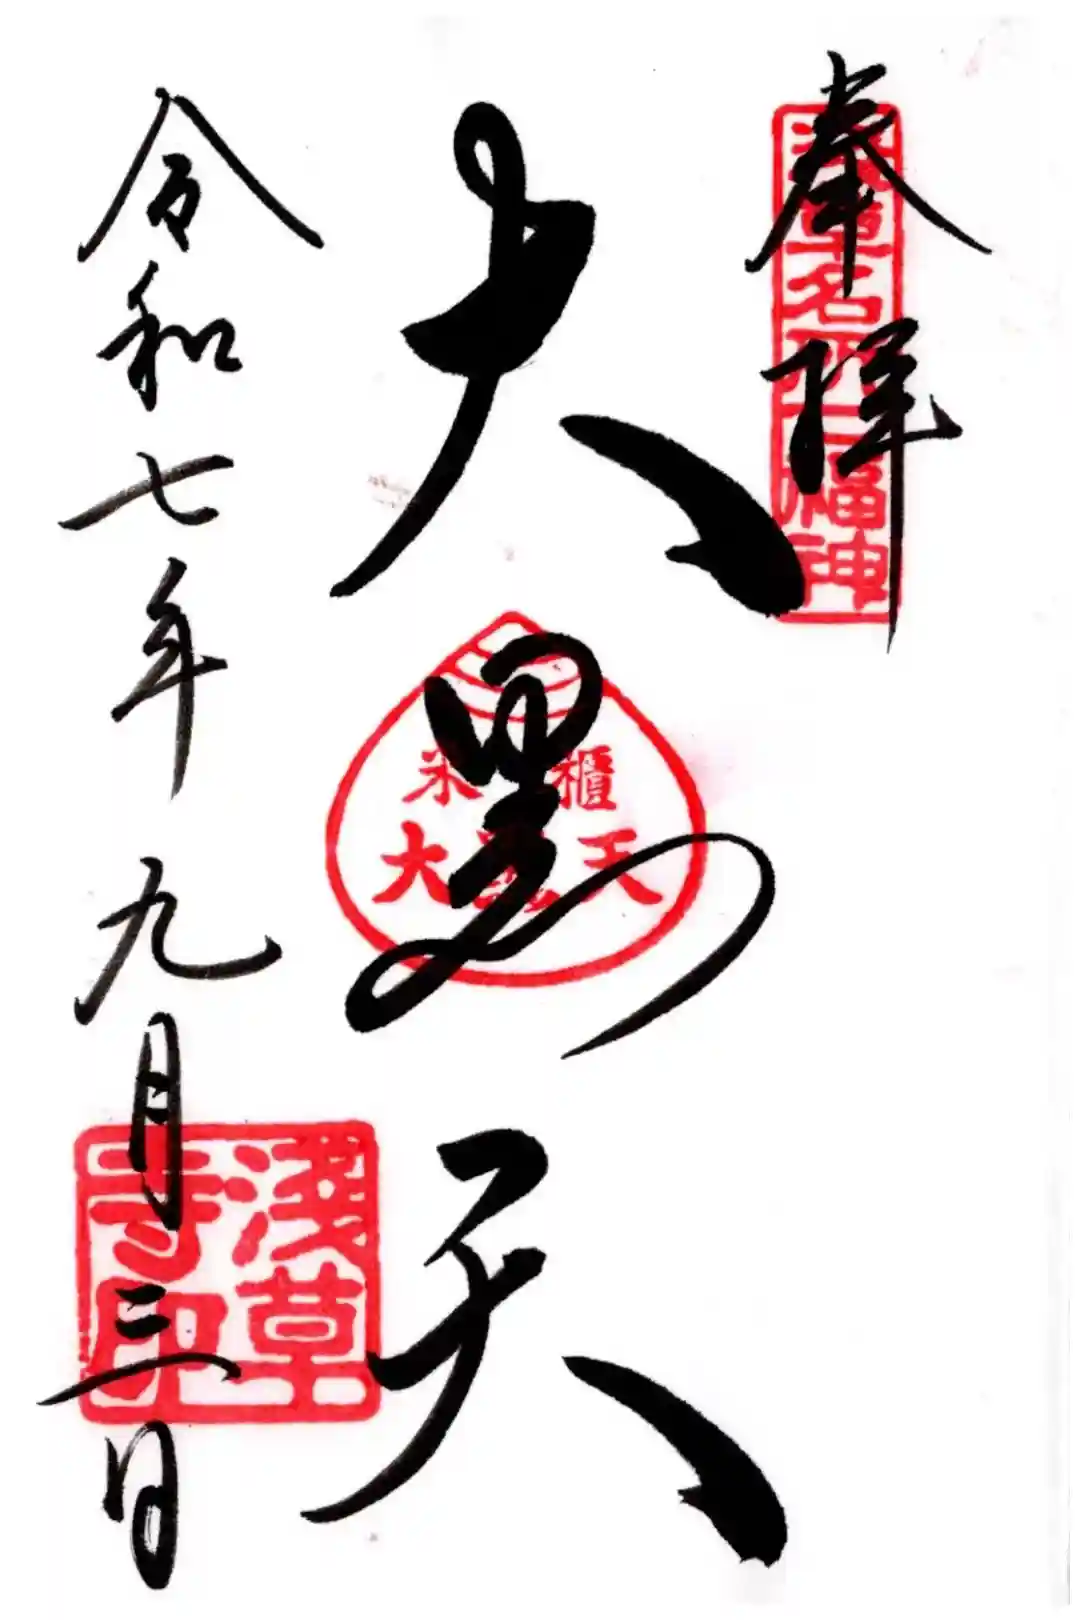 奉拝
浅草名所七福神
大黒天
米櫃
大黒天
令和七年九月三日
浅草寺印